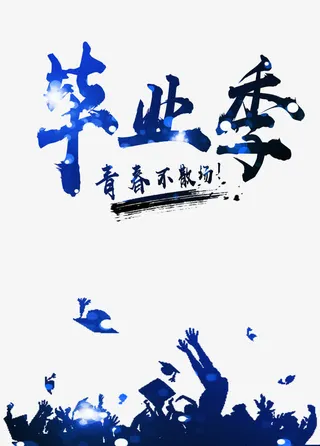 毕业季
青春不散场!